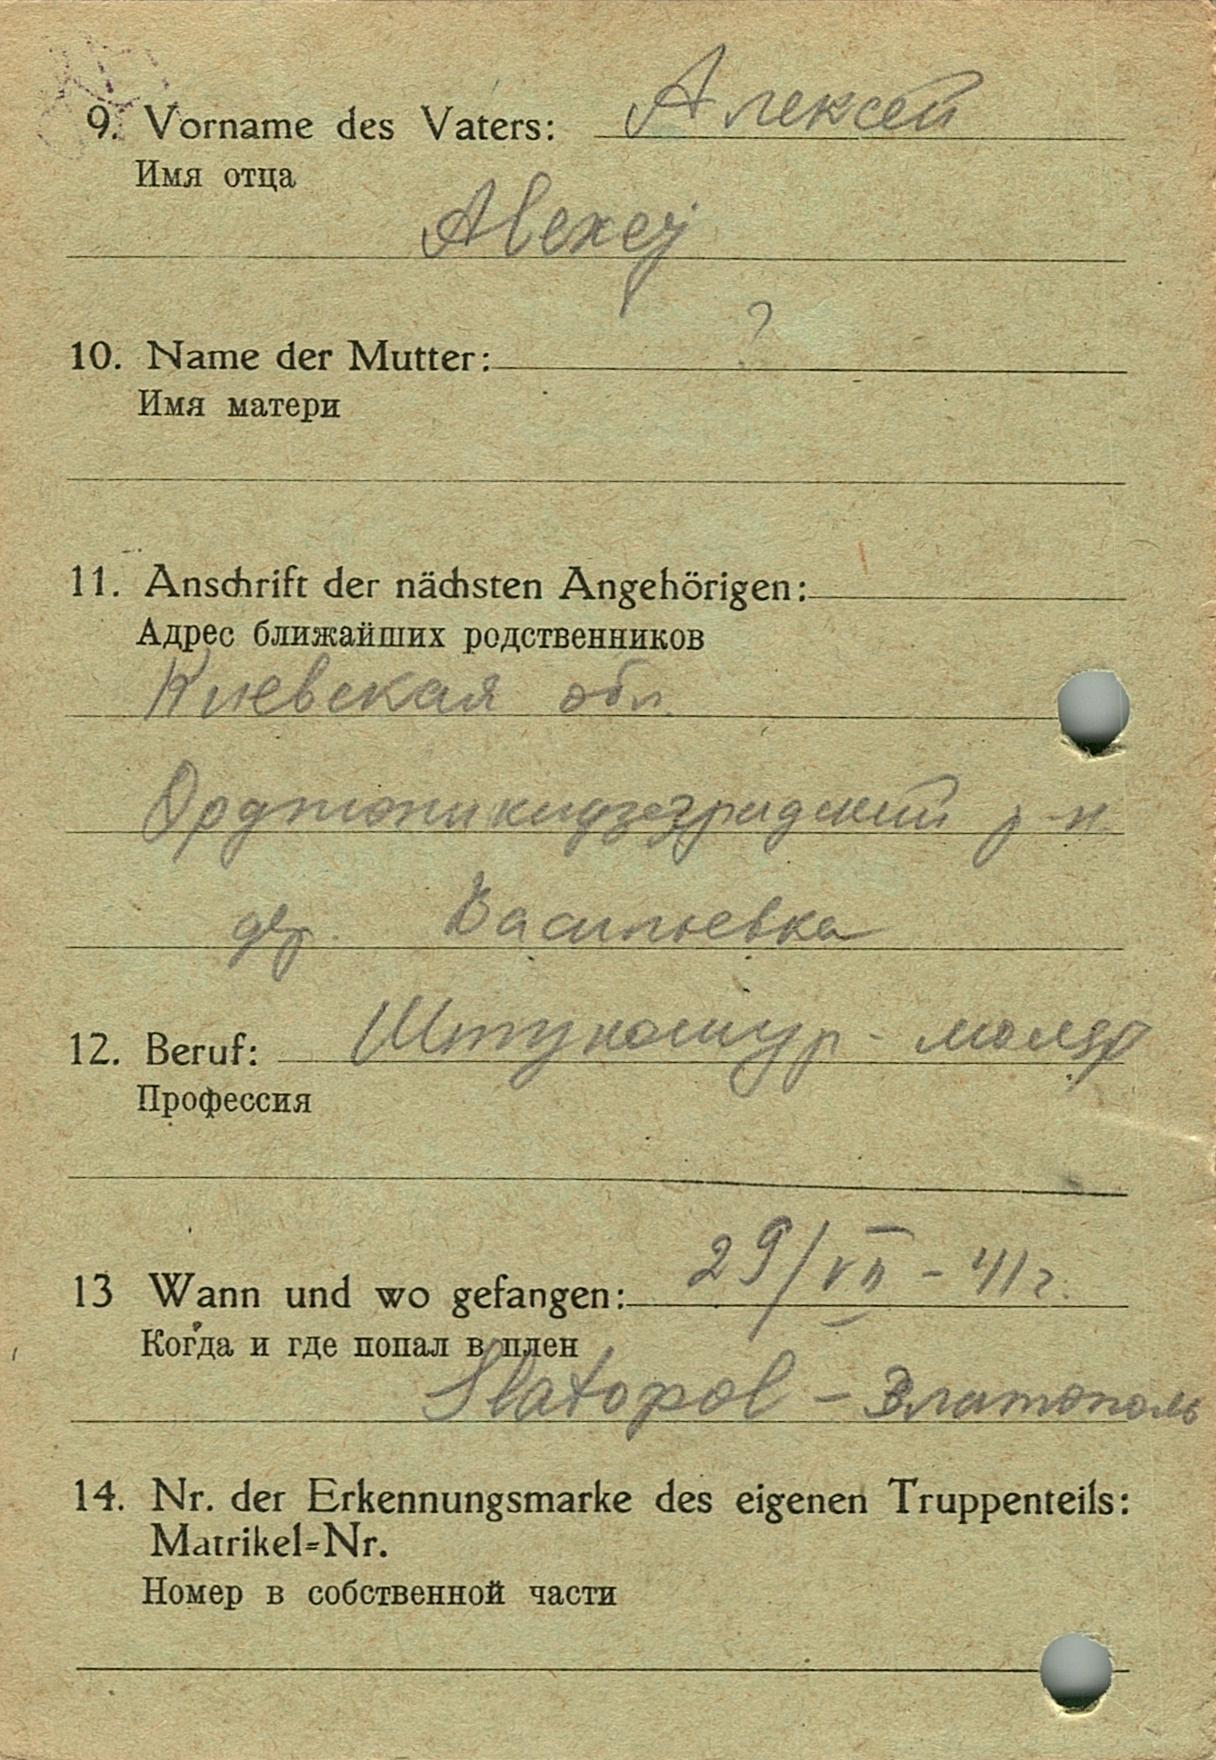 9. Vorname des Vaters: Алексей
Имя отца
Alexej
10. Name der Mutter: ?
Имя матери
11. Anschrift der nächsten Angehörigen:
Адрес ближайших родственников
Киевская обл.
р-н.
дер. Васильевка
12. Beruf: Штукатур - маляр
Профессия
13 Wann und wo gefangen: 29/VII - 41 г.
Когда и где попал в плен
Slatopol - Златополь
14. Nr. der Erkennungsmarke des eigenen Truppenteils:
Matrikel=Nr.
Номер в собственной части